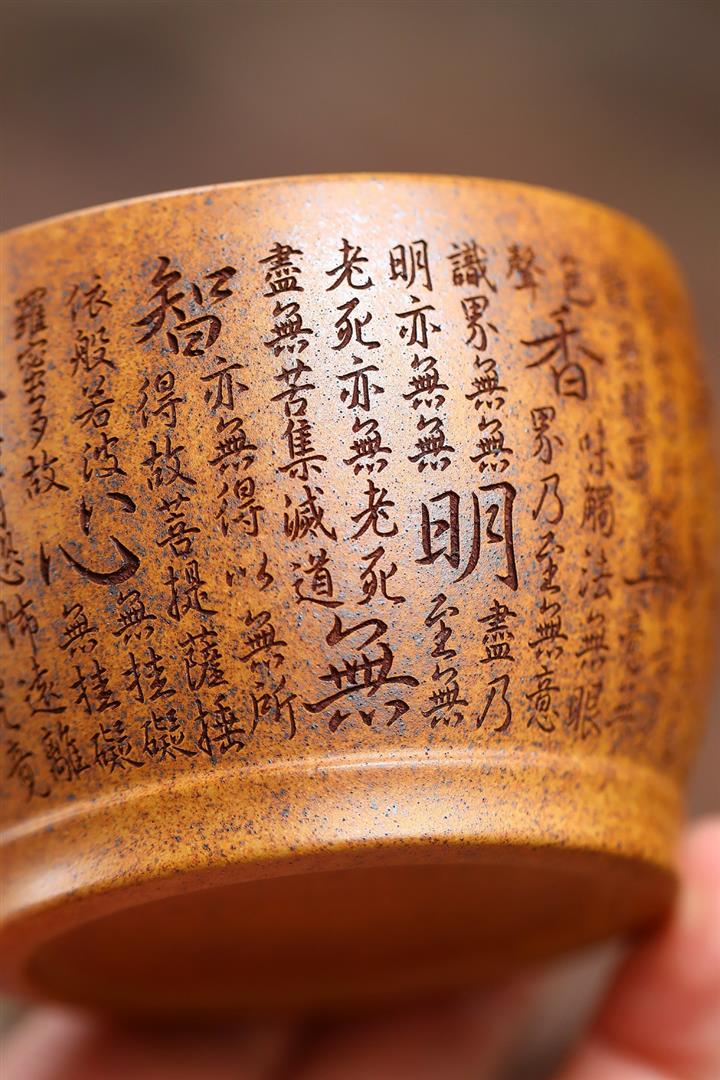 色味觸法無眼
聲香界乃至無意
識界無無明盡乃
明亦無無至無
老死亦無老死
盡無苦集滅道無
智亦無得以無所
得故菩提薩埵
依般若波心無挂礙
羅蜜多故無挂礙
恐怖遠離
竟